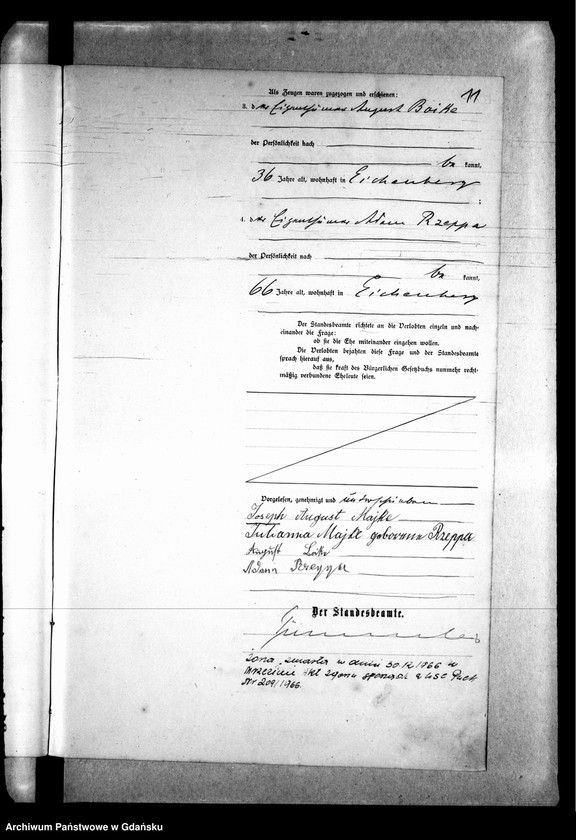 11
Als Zeugen waren zugezogen und erschienen:
3. der Eigenthümer August Boike
der Persönlichkeit nach
be kannt,
36 Jahre alt, wohnhaft in Eichenberg
;
4. der Eigenthümer Adam Rzeppa
der Persönlichkeit nach
be kannt,
66 Jahre alt, wohnhaft in Eichenberg
Der Standesbeamte richtete an die Verlobten einzeln und nach-
einander die Frage:
ob sie die Ehe miteinander eingehen wollen.
Die Verlobten bejahten diese Frage und der Standesbeamte
sprach hierauf aus,
daß sie kraft des Bürgerlichen Gesetzbuchs nunmehr recht-
mäßig verbundene Eheleute seien.
Vorgelesen, genehmigt und unterschrieben
Joseph August Majke
Julianna Majke geborene Rzeppa
August
Adam Rzeppa
Der Standesbeamte.
Żona zmarła w dniu 30.IX.1966 w
akt zgonu USC Puck
Nr 209/1966.
Archiwum Państwowe w Gdańsku